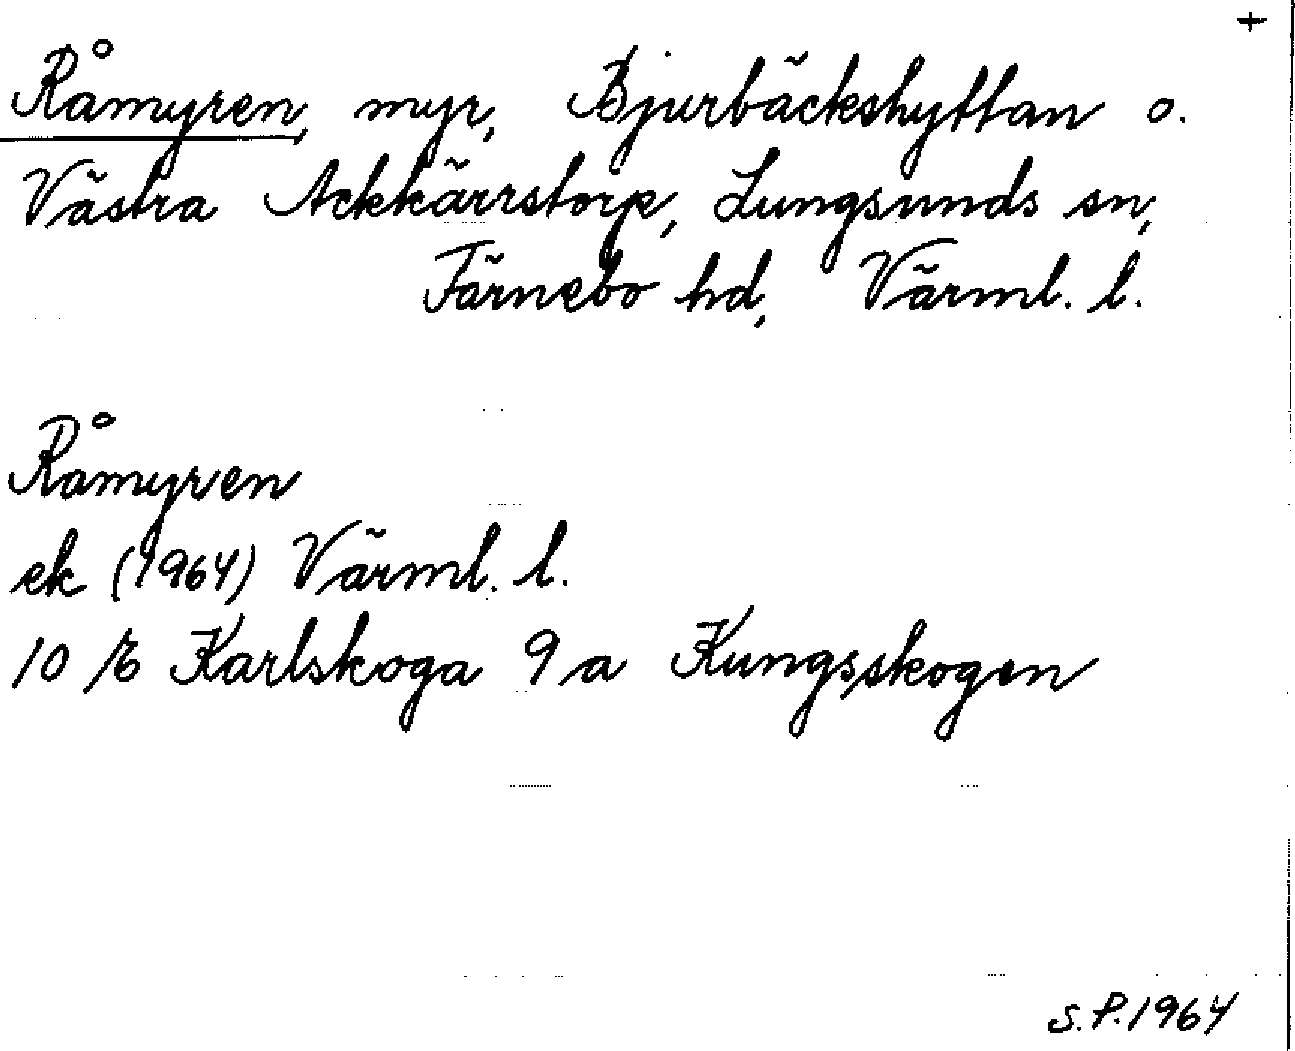 +
Råmyren, myr, Bjurbäckshyttan o.
Västra Ackkärrstorp, Lungsunds sn,
Färnebo hd, Värml. l.
Råmyren
ek (1964) Värml. l.
10 E Karlskoga 9 a Kungsskogen
S.P. 1964